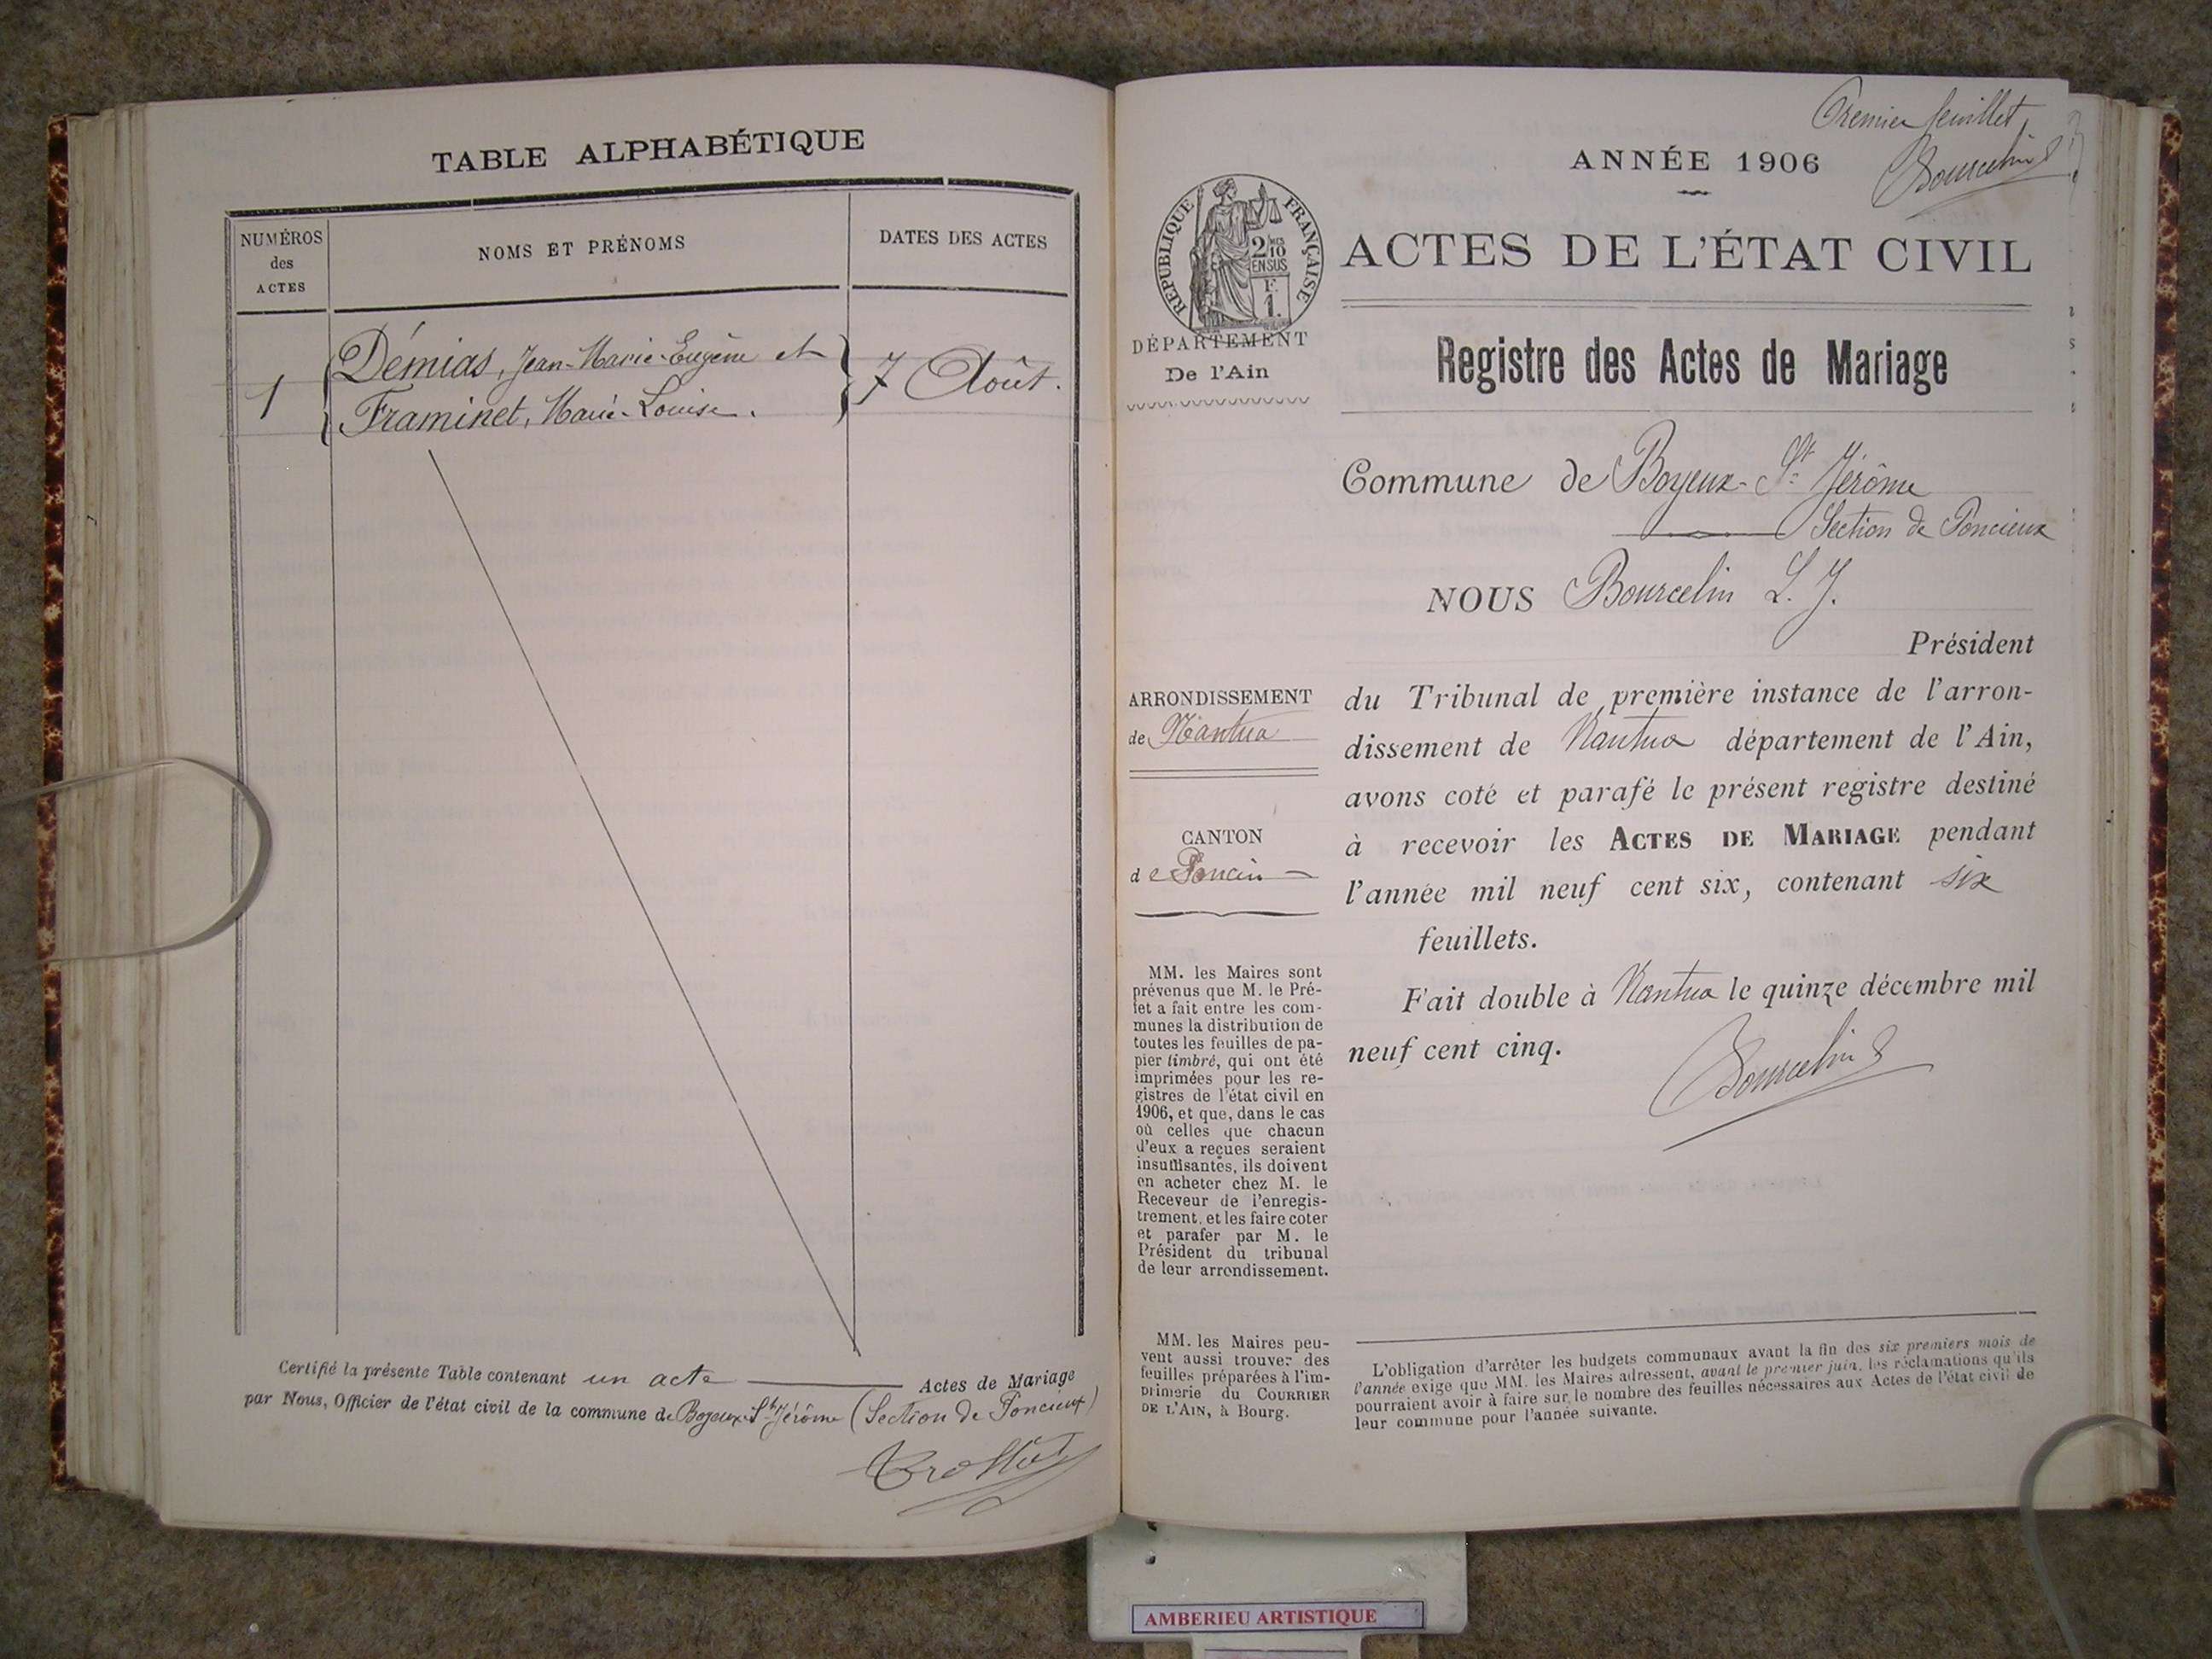 TABLE ALPHABÉTIQUE
NUMÉROS
des
ACTES
NOMS ET PRÉNOMS
DATES DES ACTES
1
Démias, Jean-Marie-Eugène et
Framinet, Marie-Louise.
7 Août.
Certifié la présente Table contenant un acte Actes de Mariage
par Nous, Officier de l'état civil de la commune de Boyeux-St Jérôme (Section de Poncieux)
Premier feuillet
Bourcelin
ANNÉE 1906
RÉPUBLIQUE FRANÇAISE
2/10
EN SUS
F.
1.
ACTES DE L'ÉTAT CIVIL
DÉPARTEMENT
De l'Ain
Registre des Actes de Mariage
Commune de Boyeux-St Jérôme
Section de Poncieux
NOUS Bourcelin L. J.
Président
du Tribunal de première instance de l'arron-
dissement de Nantua département de l'Ain,
avons coté et parafé le présent registre destiné
à recevoir les ACTES DE MARIAGE pendant
l'année mil neuf cent six, contenant six
feuillets.
Fait double à Nantua le quinze décembre mil
neuf cent cinq.
Bourcelin
ARRONDISSEMENT
de Nantua
CANTON
de Poncin
MM. les Maires sont
prévenus que M. le Pré-
fet a fait entre les com-
munes la distribution de
toutes les feuilles de pa-
pier timbré, qui ont été
imprimées pour les re-
gistres de l'état civil en
1906, et que, dans le cas
où celles que chacun
d'eux a reçues seraient
insuffisantes, ils doivent
en acheter chez M. le
Receveur de l'enregis-
trement, et les faire coter
et parafer par M. le
Président du tribunal
de leur arrondissement.
MM. les Maires peu-
vent aussi trouver des
feuilles préparées à l'im-
primerie du COURRIER
DE L'AIN, à Bourg.
L'obligation d'arrêter les budgets communaux avant la fin des six premiers mois de
l'année exige que MM. les Maires adressent, avant le premier juin, les réclamations qu'ils
pourraient avoir à faire sur le nombre des feuilles nécessaires aux Actes de l'état civil de
leur commune pour l'année suivante.
AMBERIEU ARTISTIQUE